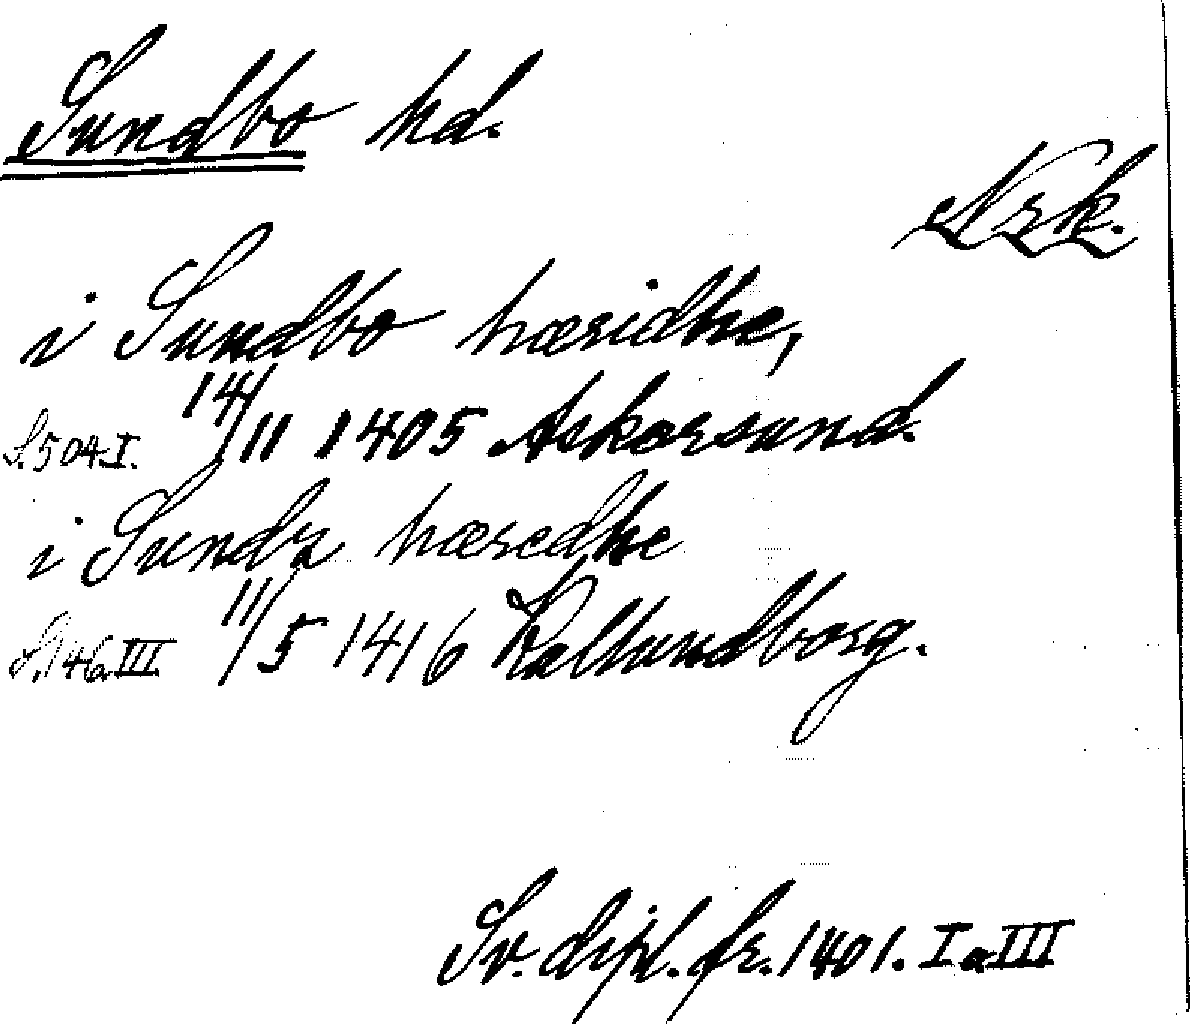 Sundbo hd.
Nrk.
i Sundbo hæridhe,
S.504.I. 14/11 1405 Askersund.
i Sundz hæredhe
S.146.III 11/5 1416 Kallundborg.
Sv. dipl. fr. 1401. I a III